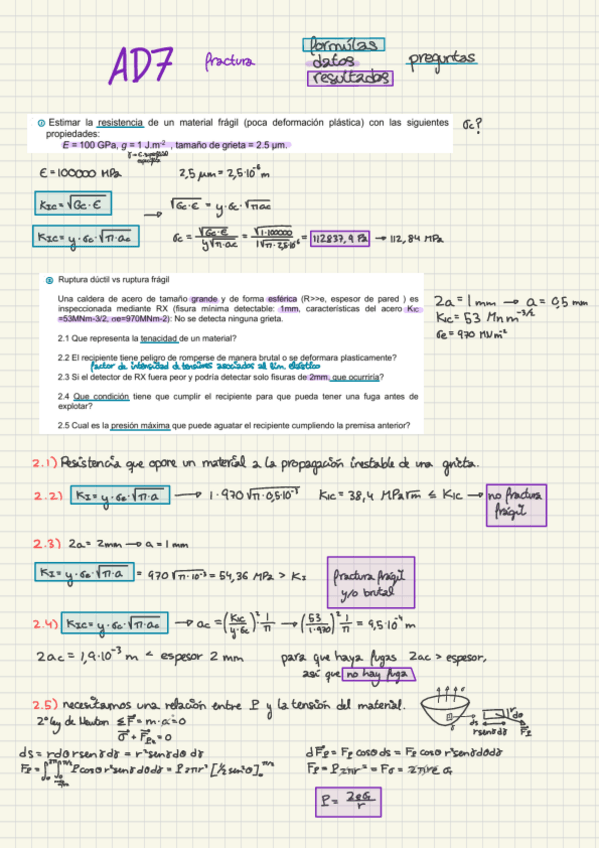 AD7 fractura
formúlas
datos
resultados
preguntas
① Estimar la resistencia de un material frágil (poca deformación plástica) con las siguientes propiedades:
E = 100 GPa, g = 1 J.m-2 , tamaño de grieta = 2.5 μm.
σc?
E = 100000 MPa 2,5 μm = 2,5·10⁻⁶ m
KIC = √Gc·E → √Gc·E = y·σc·√π·ac
KIC = y·σc·√π·ac σc = √Gc·E / y√π·ac = √1·100000 / 1√π·2,5·10⁻⁶ = 112837,9 Pa → 112,84 MPa
② Ruptura dúctil vs ruptura frágil
Una caldera de acero de tamaño grande y de forma esférica (R>>e, espesor de pared ) es
inspeccionada mediante RX (fisura mínima detectable: 1mm, características del acero KIC
=53MNm-3/2, σe=970MNm-2): No se detecta ninguna grieta.
2a = 1 mm → a = 0,5 mm
KIC = 53 MN m⁻³/²
σe = 970 MN m⁻²
2.1 Que representa la tenacidad de un material?
2.2 El recipiente tiene peligro de romperse de manera brutal o se deformara plasticamente?
factor de intensidad de tensiones asociados al lím. elástico
2.3 Si el detector de RX fuera peor y podría detectar solo fisuras de 2mm, que ocurriría?
2.4 Que condición tiene que cumplir el recipiente para que pueda tener una fuga antes de
explotar?
2.5 Cual es la presión máxima que puede aguatar el recipiente cumpliendo la premisa anterior?
2.1) Resistencia que opone un material a la propagación inestable de una grieta.
2.2) KI = y·σe·√π·a → 1·970√π·0,5·10⁻³ KIC = 38,4 MPa√m ≤ KIC → no fractura frágil
2.3) 2a = 2mm → a = 1 mm
KI = y·σe·√π·a = 970√π·10⁻³ = 54,36 MPa > KI fractura frágil y/o brutal
2.4) KIC = y·σc·√π·ac → ac = (KIC / y·σc)² · 1/π → (53 / 1·970)² 1/π = 9,5·10⁻⁴ m
2ac = 1,9·10⁻³ m < espesor 2 mm para que haya fugas 2ac > espesor,
así que no hay fuga
2.5) necesitamos una relación entre P y la tensión del material.
2º ley de Newton ΣF = m·a = 0